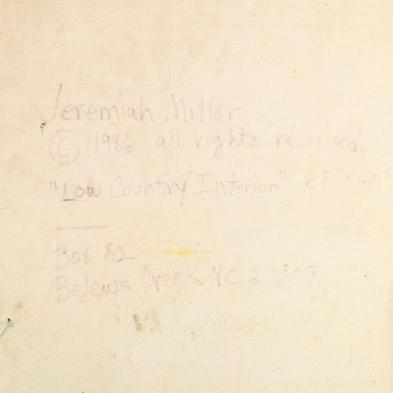 Jeremiah Miller
© 1986 all rights reserved.
"Low Country Interior"
Box 82
Belews Creek NC